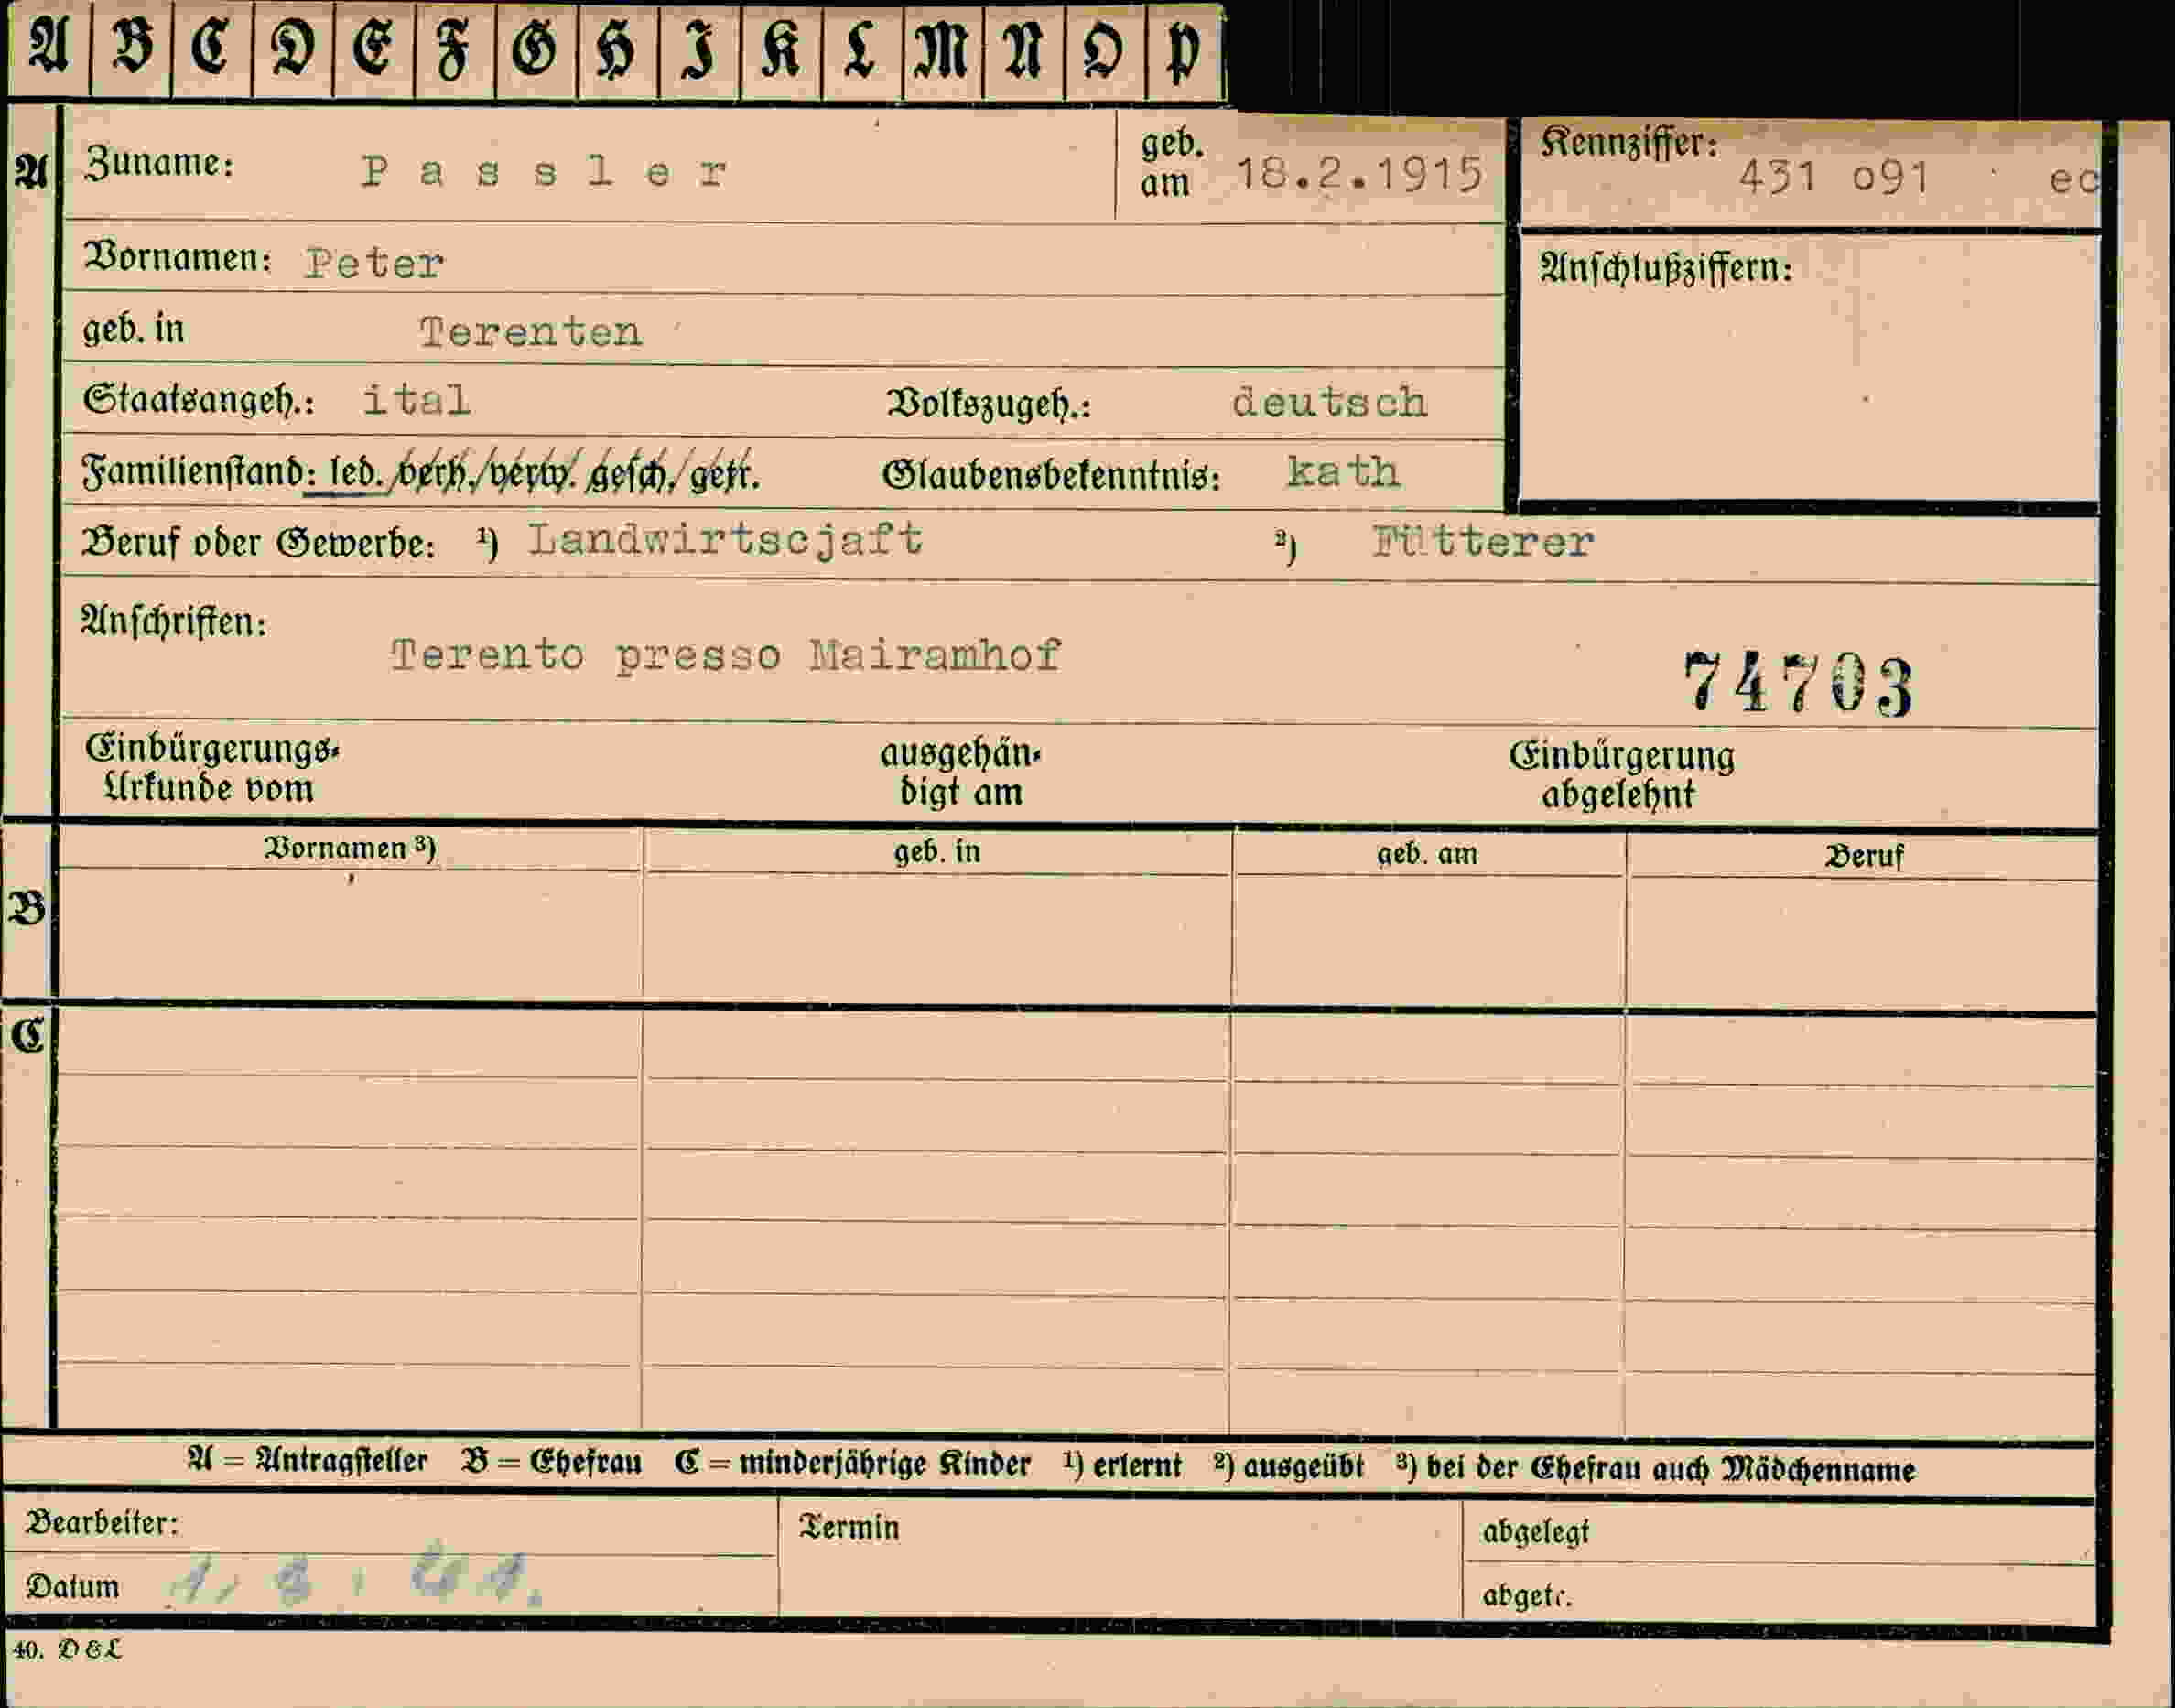 A B C D E F G H I K L M N O P
A Zuname: Passler geb. am 18.2.1915 Kennziffer: 431 o91 ec
Vornamen: Peter Anschlußziffern:
geb. in Terenten
Staatsangeh.: ital Volkszugeh.: deutsch
Familienstand: led. verh./verw. gesch./getr. Glaubensbekenntnis: kath
Beruf oder Gewerbe: ¹) Landwirtscjaft ²) Fütterer
Anschriften:
Terento presso Mairamhof 74703
Einbürgerungs-Urkunde vom ausgehändigt am Einbürgerung abgelehnt
Vornamen ³) geb. in geb. am Beruf
B
C
A = Antragsteller B = Ehefrau C = minderjährige Kinder ¹) erlernt ²) ausgeübt ³) bei der Ehefrau auch Mädchenname
Bearbeiter: Termin abgelegt
Datum abgetr.
40. D&L